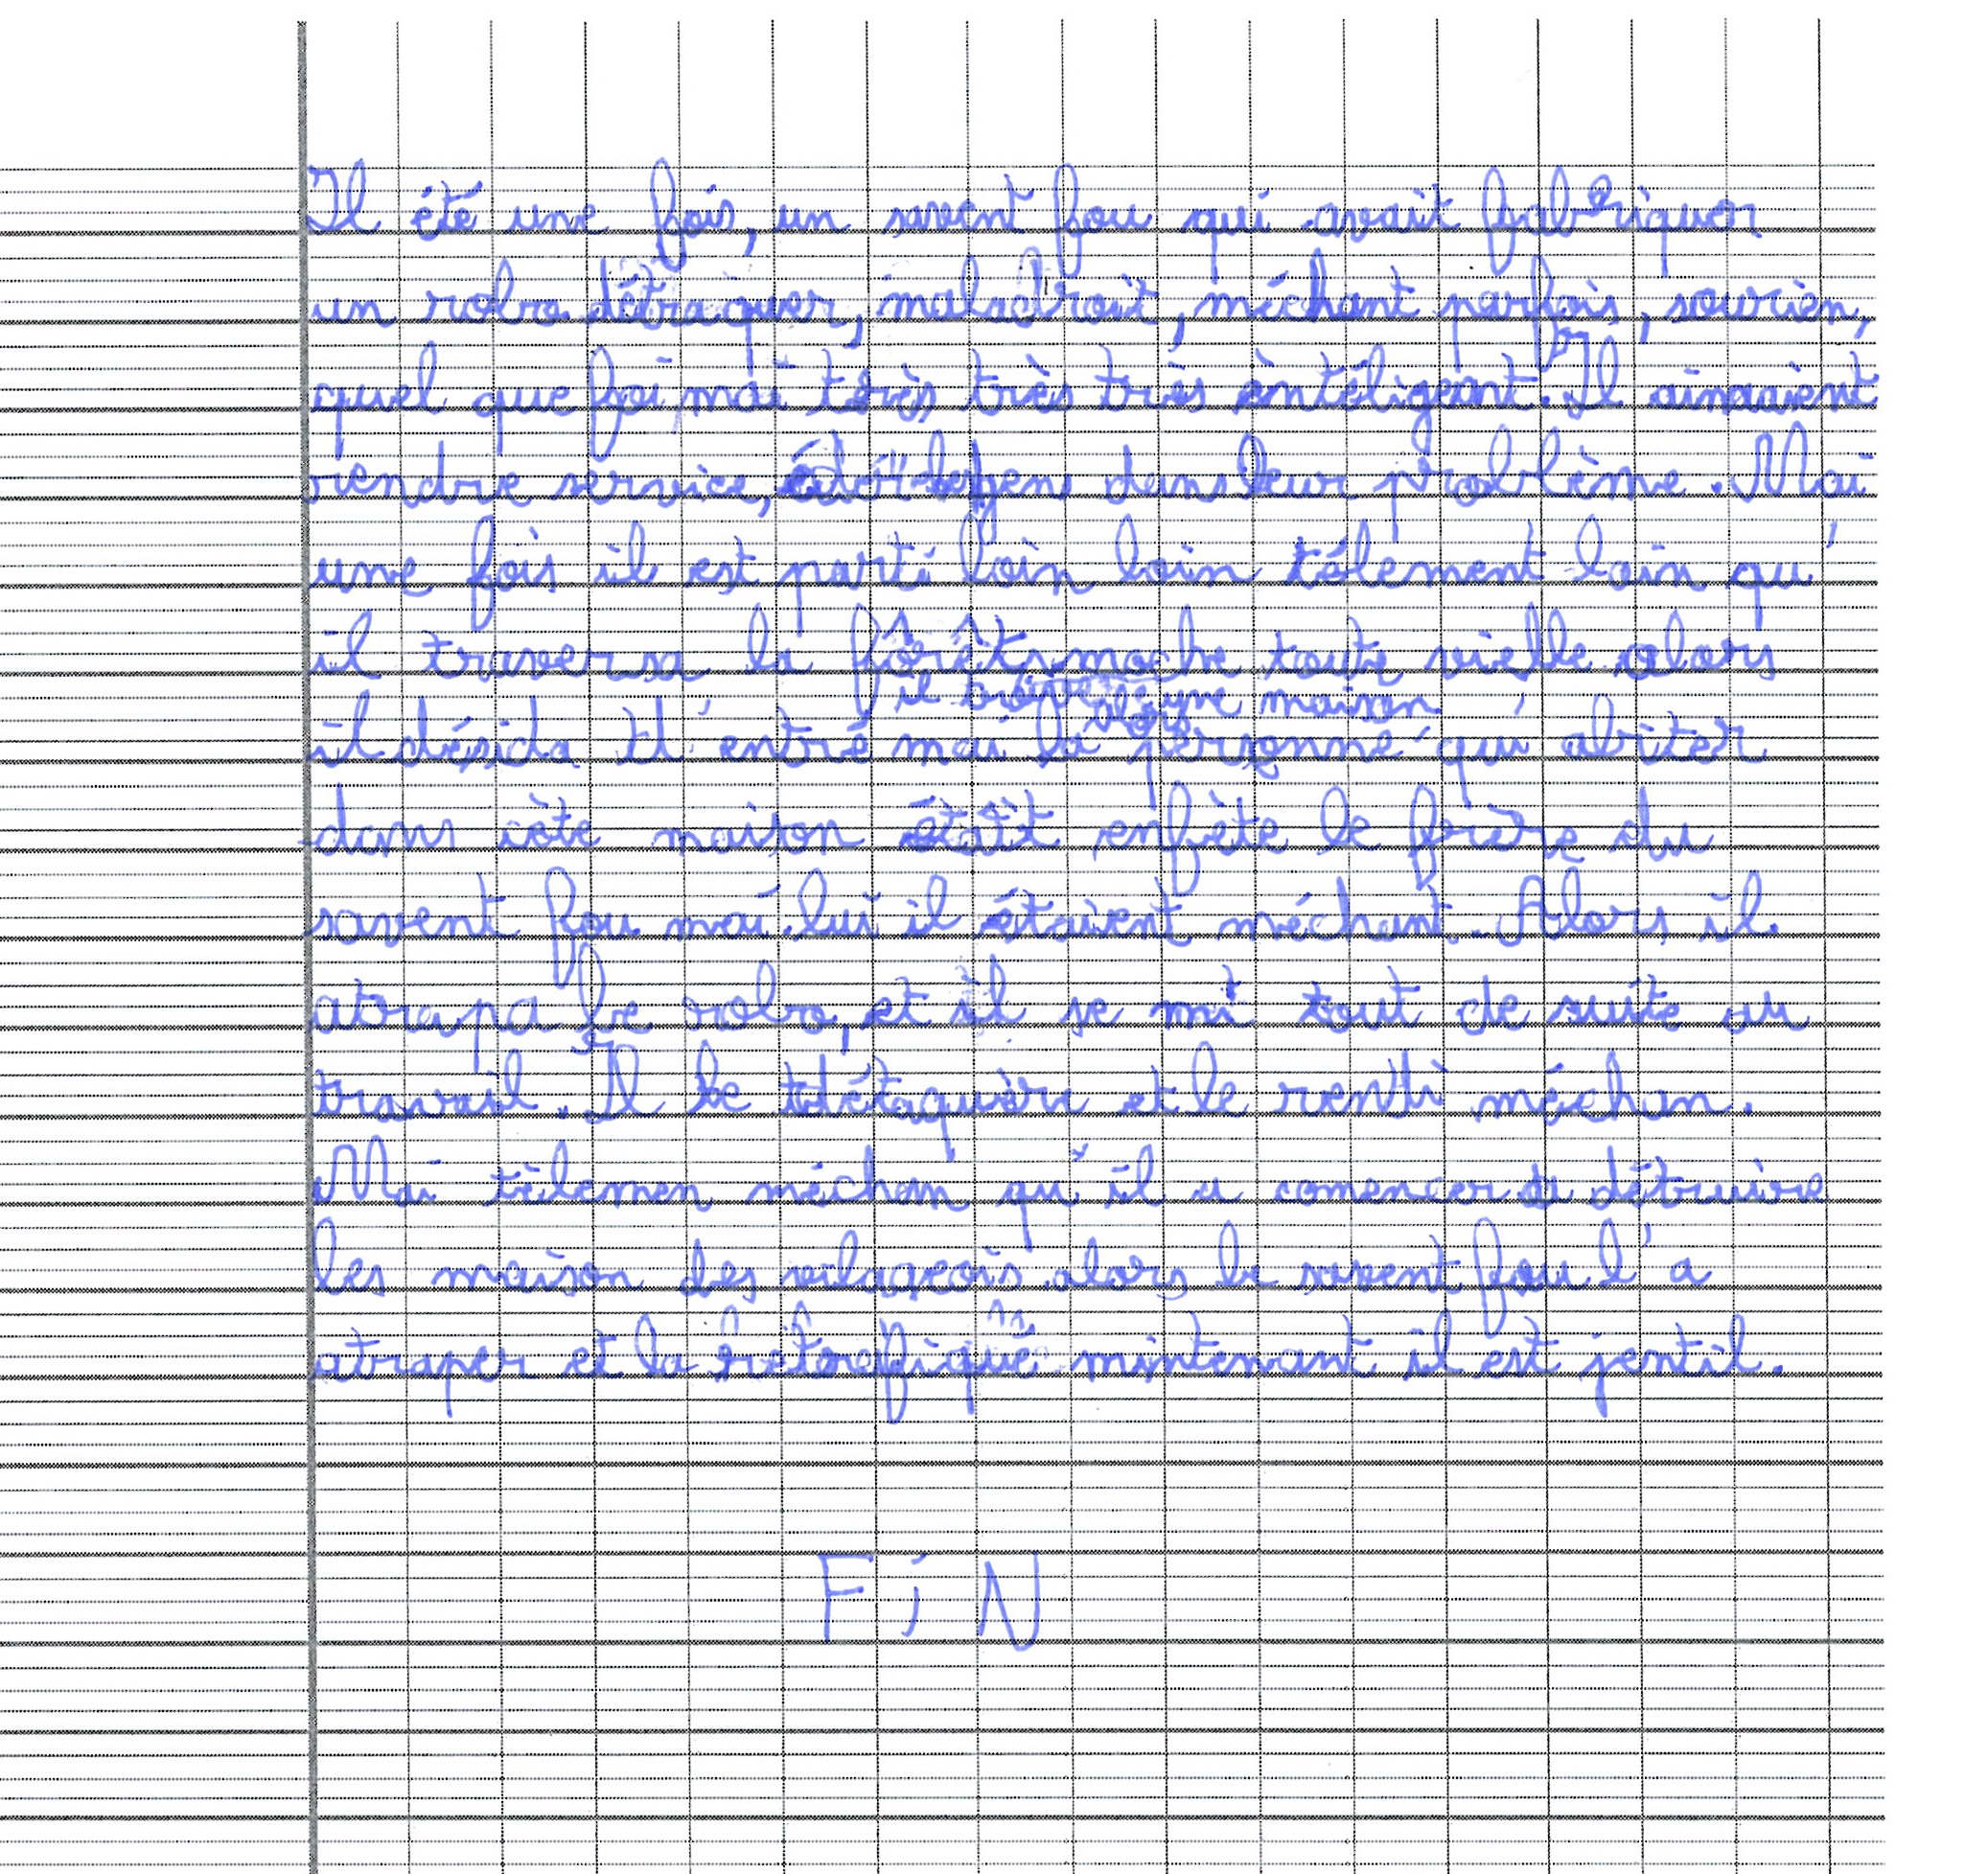 Il été une fois, un savent fou qui avait fabriquer
un robo détraquer, maladroit, méchant parfois, sourien,
quel que foi mai très très très èntéligeant. Il aimaient
rendre service, les gens dans leur problème. Mai
une fois il est parti loin loin télement loin qu'
il traversa la fôrêt moche toute vielle alors
il trouve une maison
il désida d'entré mai la personne qui abiter
dans cète maison était enfète le frère du
savent fou mai lui il étaient méchant. Alors il
atrapa le robo, et il se mi tout de suite au
travail. Il le détaquère et le rendi méchan.
Mai tèlemen méchan qu'il a comencer a détruire
les maison des vilageois alors le savent fou l'a
atraper et la mintenant il est jentil.
FiN